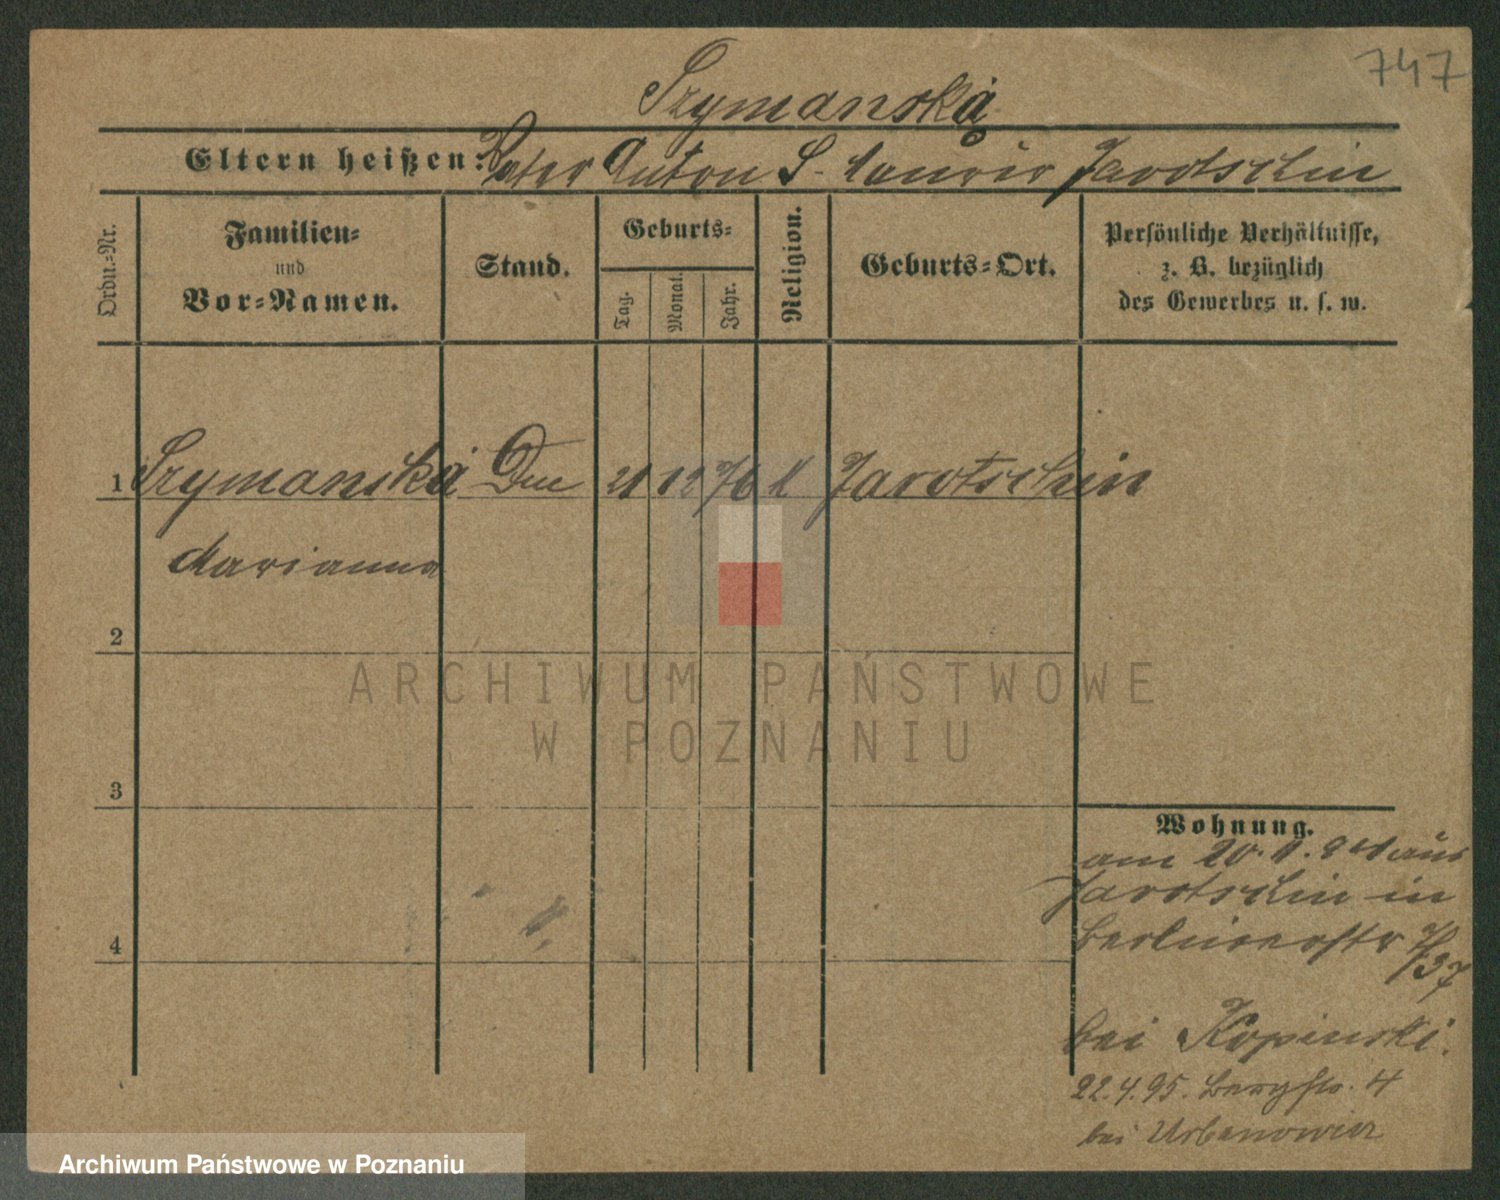 747
Szymanska
Eltern heißen: Vater Anton S. Maurer Jarotschin
Ordn.-Nr.
Familien-
und
Vor-Namen.
Stand.
Geburts-
Tag.
Monat.
Jahr.
Religion.
Geburts-Ort.
Persönliche Verhältnisse,
z. B. bezüglich
des Gewerbes u. s. w.
1 Szymanska 21 12 76 k Jarotschin
Marianna
2
3
4
Wohnung.
am 20. aus
Jarotschin in
Berlinerstr
bei Kopinski.
22.4.95. Bergstr. 4
bei Urbanowicz
ARCHIWUM PAŃSTWOWE
W POZNANIU
Archiwum Państwowe w Poznaniu